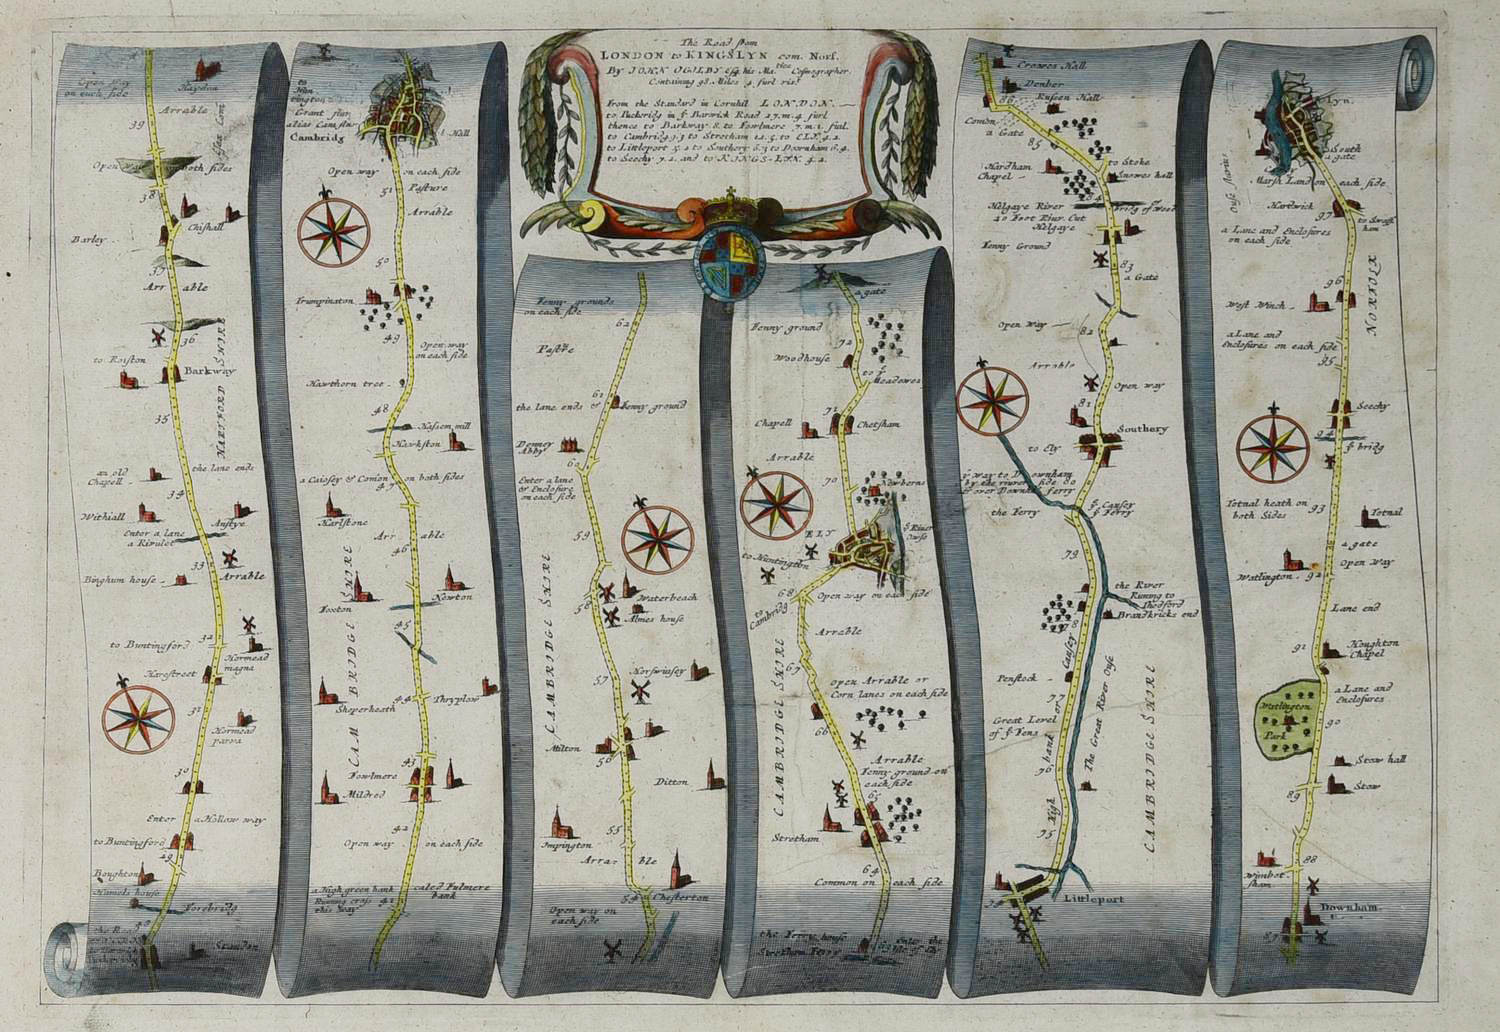 The Road from
LONDON to KINGSLYN com. Norf.
By JOHN OGILBY Esq. his Ma.ties Cosmographer.
Containing 98 Miles 4 furl viz.t
From the Standard in Cornhil LONDON
to Puckeridg in ye Barwick Road 27.m.4 furl
thence to Barkway 8. to Fowlmere 7.m.1. furl.
to Cambridg 9.3 to Stretham
to Littleport 5.2 to Southery 6.3 to Downham 6.4.
to Seechy 7.2. and to KINGS-LYN 4.2.
Open Way
on each side
Haydon
Arrable
39
Open way
both sides
38
Chishall
Barley
37
Arr able
36
to Roiston
Barkway
HARTFORD SHIRE
35
an old
Chapell
the lane ends
34
Withiall
Anstye
Enter a lane
a Rivulet
33
Arrable
Bingham house
32
to Buntingford
Hormead
magna
Harestreet
31
Hormead
parva
30
Enter a Hollow way
to Buntingford
29
Boughton
Hamels house
Forebridg
Standon
to
Hun
tington
Grant flur
alias Cam flur
Cambridg
Hall
Open way on each side
51
Pasture
Arrable
50
Trumpington
49
Open way
on each side
Hawthorn tree
48
Hassem mill
Hawkston
a Causey & Comon on both sides
47
Harlstone
Arr able
46
Foxton
Newton
CAM BRIDGE SHIRE
45
44
Thryplow
Sheperheath
43
Fowlmere
Mildred
42
Open way on each side
a High green bank
Runing cross
this Way
caled Fulmere
bank
41
Fenny grounds
on each side
62
Pastre
61
the lane ends & Fenny ground
Denney
Abby
60
Enter a lane
& Enclosure
on each side
59
Waterbeach
58
Almes house
CAMBRIDGE SHIRE
57
Horswinsey
Milton
56
Ditton
Impington
55
Arra ble
54
Chesterton
Open way on
each side
a gate
Fenny ground
72
Woodhouse
to ye
Meadowes
71
Chapell
Chetsham
Arrable
70
Newborns
ELY
ye River
Owse
to Huntington
68
Open way on each side
to
Cambridg
Arrable
67
open Arrable or
Corn lanes on each side
CAMBRIDGE SHIRE
66
Arrable
Fenny ground on
each side
65
Stretham
64
Common on each side
the Ferry house
Stretham Ferry
enter the
Isle of Ely
Crowes Hall
Denber
86
Ruseen Hall
Comon
a Gate
85
to Stoke
Hardham
Chapel
Snowes hall
84
Helgaye River
20 Foot River Cut
Bridg of Wood
Helgaye
Fenny Ground
83
a Gate
Open way
82
Arrable
Open way
81
Southery
to Ely
ye way to Downham
by the river side 80
& over Downham ferry
the Ferry
ye Causey
& Ferry
79
the River
Runing to
Thedford
Brandkricks end
78
Causey
Penstock
77
or
Great Level
of ye Fens
The Great River Ouse
bank
76
High
CAMBRIDGE SHIRE
75
Littleport
Lyn.
South
a gate
Marsh Land on each side
Ouse fluvius
Hardwick
97
to Swaff
ham
a Lane and Enclosures
on each side
96
West Winch
NORFOLK
a Lane and
Enclosures on each side
95
Seechy
94
ye bridg
Totnal heath on
both Sides
93
Totnal
a gate
Open Way
Watlington
92
Lane end
91
Houghton
Chapel
a Lane and
Enclosures
Watlington
Park
90
Stow hall
Stow
89
88
Wimbot
sham
Downham
87